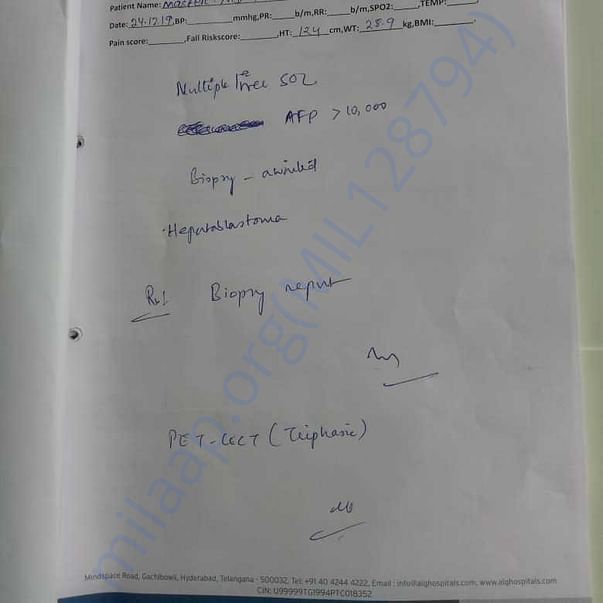 Patient Name: Master
Date: 24.12.19 BP:________mmhg,PR:____b/m,RR:____b/m,SPO2:____,TEMP:____
Pain score:______,Fall Riskscore:______,HT: 124 cm,WT: 28.9 kg,BMI:______.
Multiple SOL
AFP > 10,000
Biopsy - awaited
Hepatoblastoma
Biopsy report
PET-CECT (Triphasic)
milaap.org(MIL128794)
Mindspace Road, Gachibowli, Hyderabad, Telangana - 500032, Tel: +91 40 4244 4222, Email : info@aighospitals.com, www.aighospitals.com
CIN: U99999TG1994PTC018352